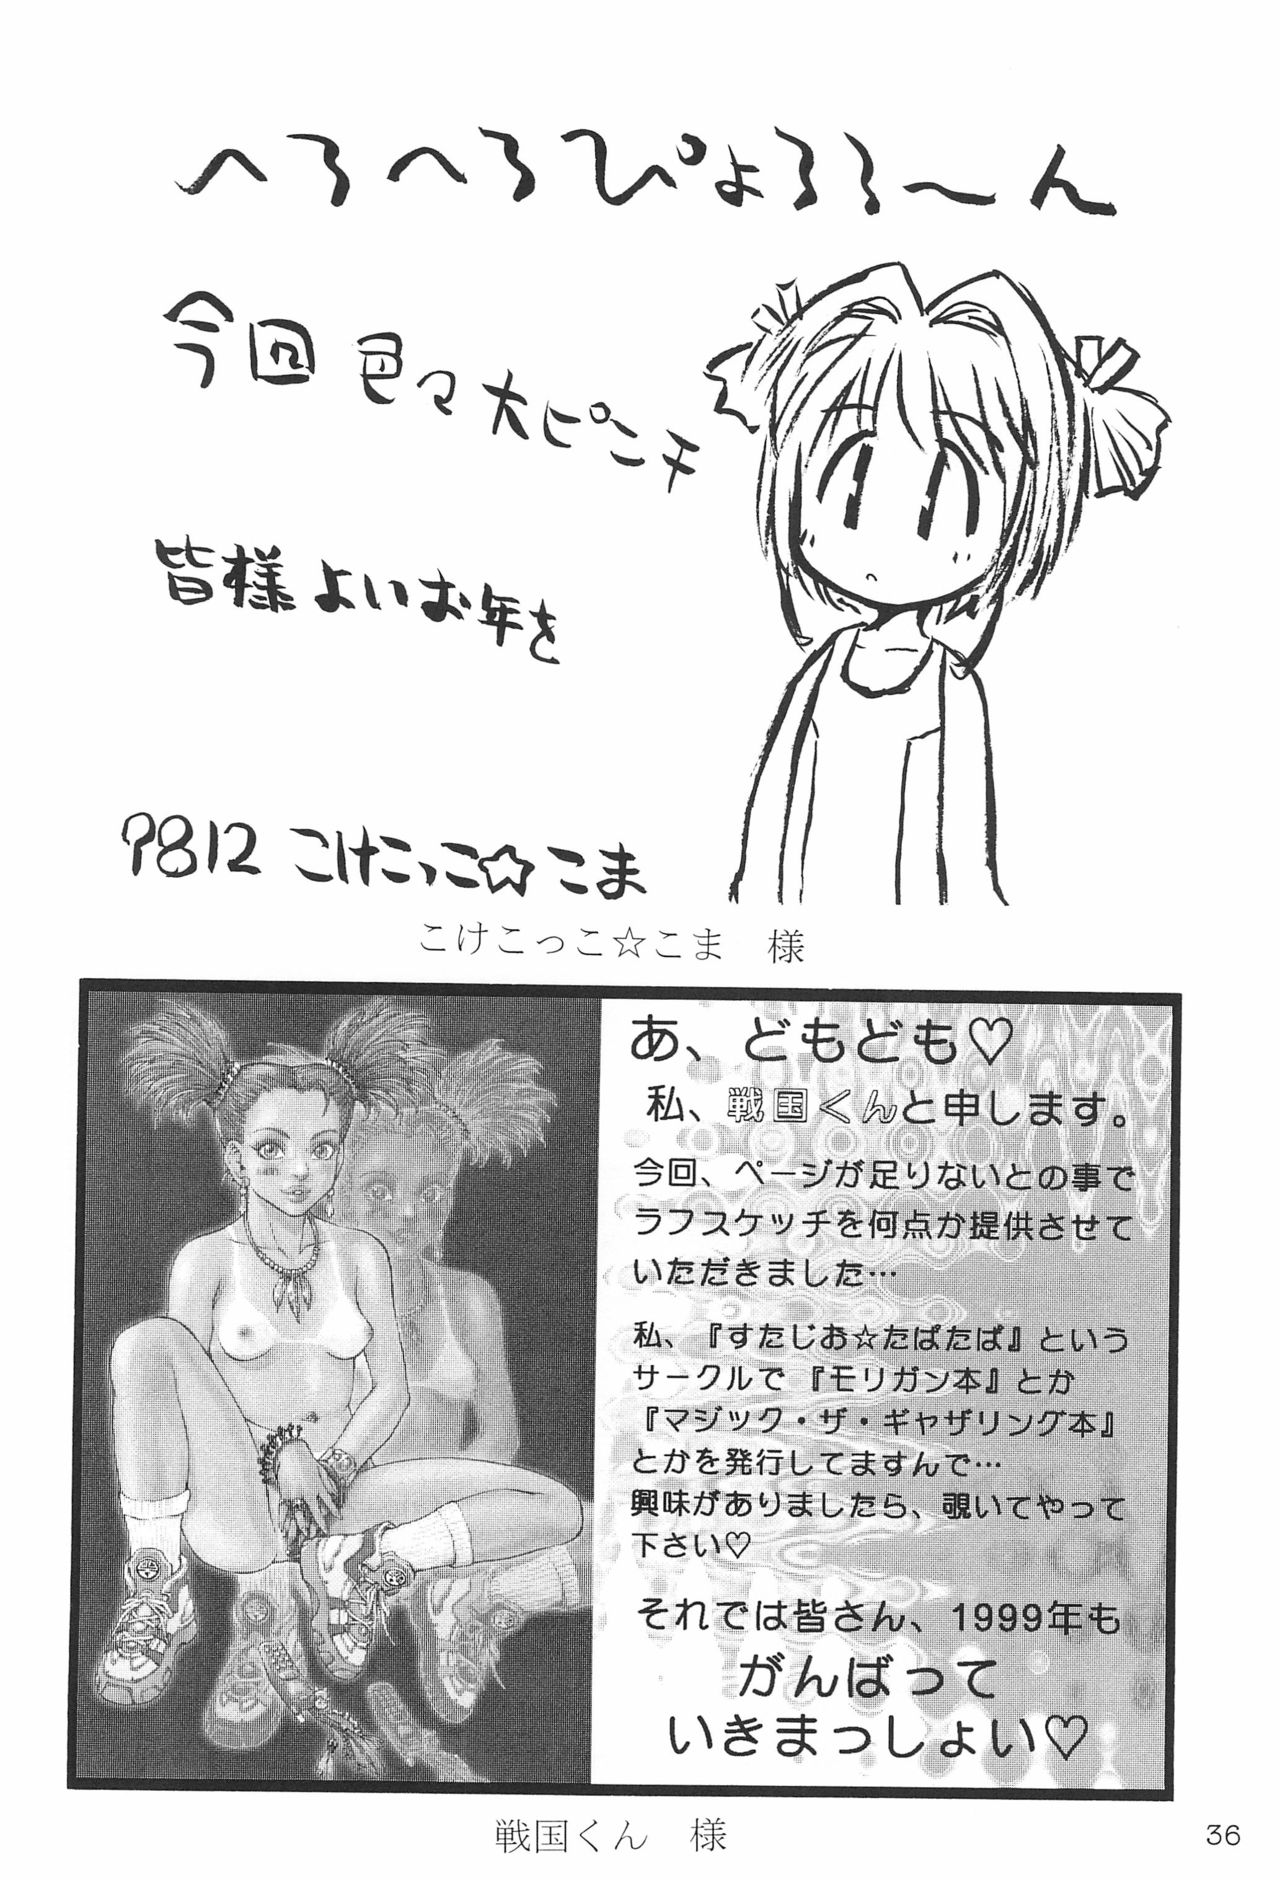 へろへろぴょろろ～ん
今回 色々大ピンチ
皆様よいお年を
9812 こけこっこ☆こま
こけこっこ☆こま　様
あ、どもども♡
私、戦国くんと申します。
今回、ページが足りないとの事で
ラフスケッチを何点か提供させて
いただきました…
私、『すたじお☆たぱたぱ』という
サークルで『モリガン本』とか
『マジック・ザ・ギャザリング本』
とかを発行してますんで…
興味がありましたら、覗いてやって
下さい♡
それでは皆さん、1999年も
がんばって
いきまっしょい♡
戦国くん　様
36